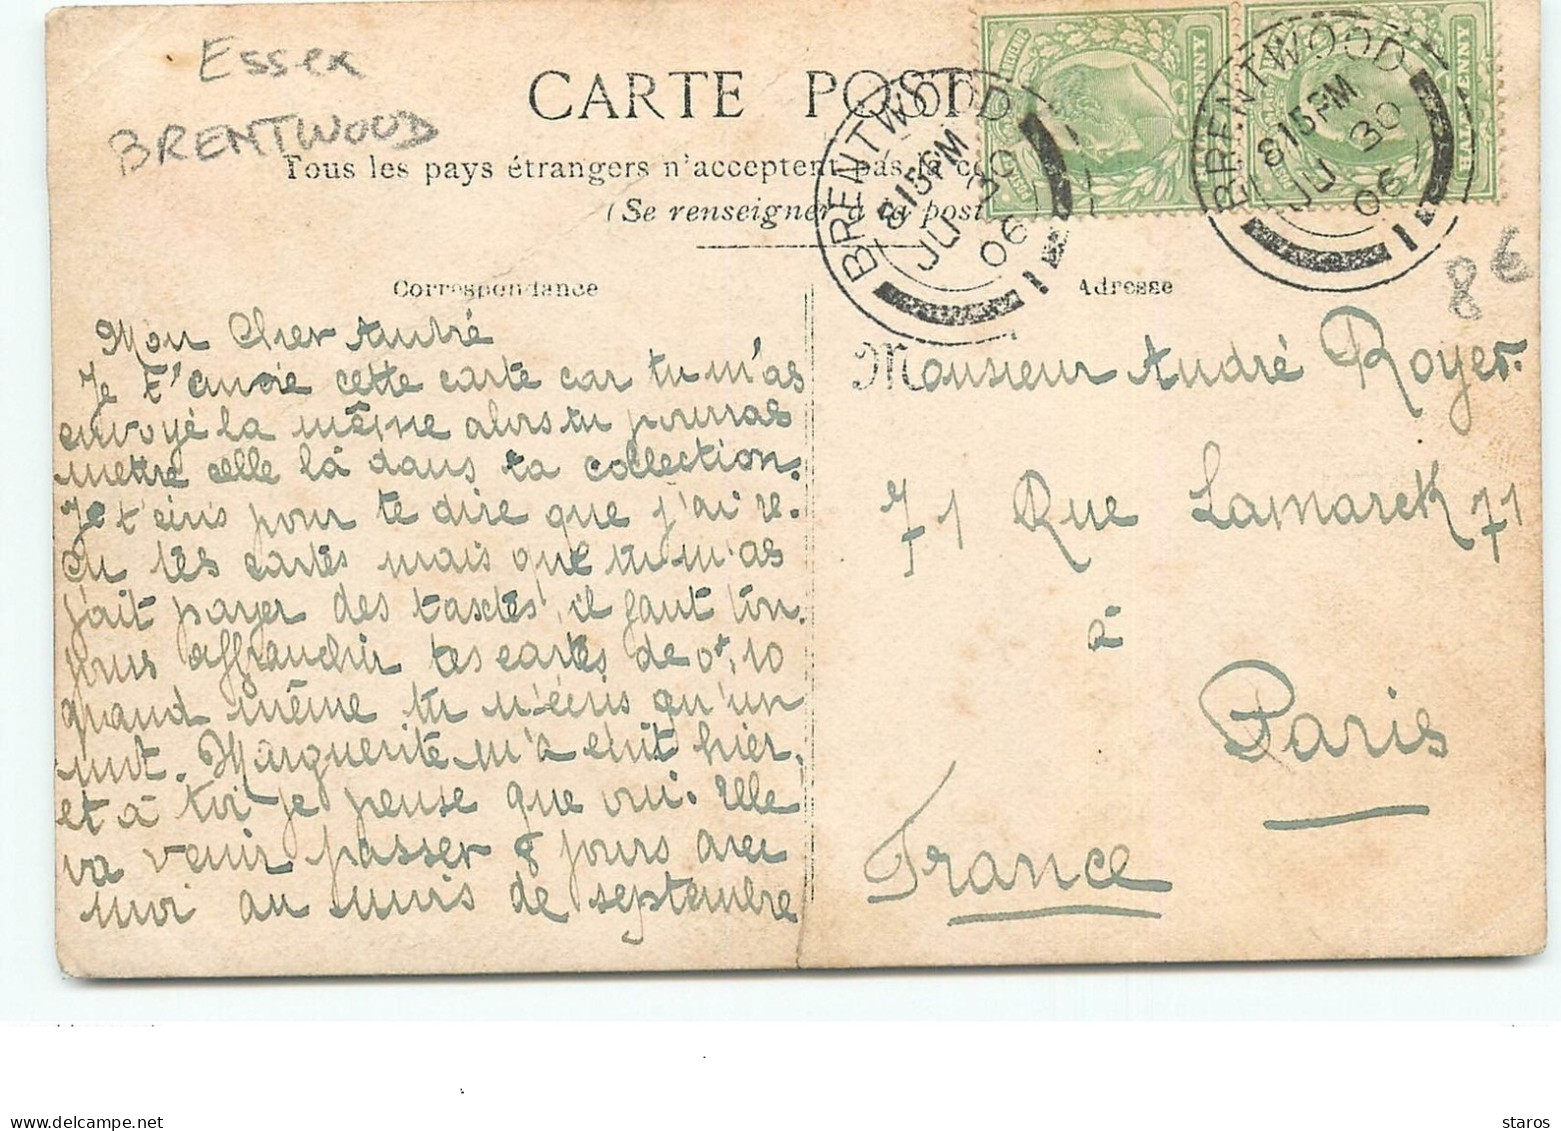 Essex
BRENTWOOD
CARTE POST
Tous les pays étrangers n'acceptent pas la co
(Se renseigner à la post
BRENTWOOD
815PM
JU 30
06
BRENTWOOD
815PM
JU 30
06
HALFPENNY
Correspondance
Adresse
8€
Mon Cher André
Je t'envoie cette carte car tu m'as
envoyé la même alors tu pourras
mettre celle là dans ta collection.
Je t'écris pour te dire que j'ai re-
çu tes cartes mais que tu m'as
fait payer des taxes, il faut tou-
jours affranchir tes cartes de 0f,10
quand même tu n'écris qu'un
mot. Marguerite m'a écrit hier,
et à toi je pense que oui. Elle
va venir passer 8 jours avec
moi au mois de septembre
Monsieur André Royer.
71 Rue Lamarck 71
à
Paris
France
delcampe.net
staros